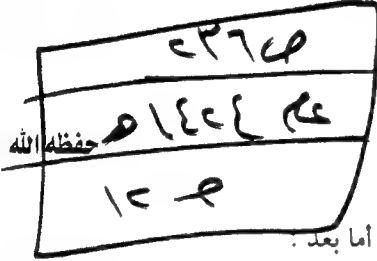 ص ٢٣٦
١٤٢٤ هـ
حفظه الله
١٢
أما بعد :